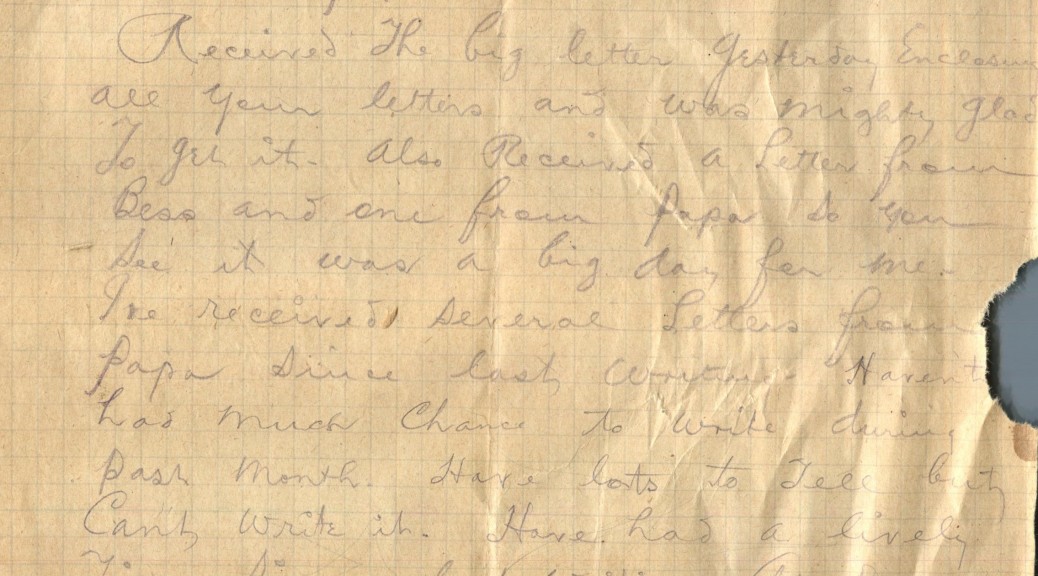 Received The big letter Yesterday Enclosing
all your letters and was mighty glad
To get it. Also Received a Letter from
Bess and one from Papa So you
See it was a big day for me.
I've received several Letters from
Papa Since last writing. Haven't
had much Chance to write during
past Month. Have lots to Tell but
Can't write it. Have had a lively